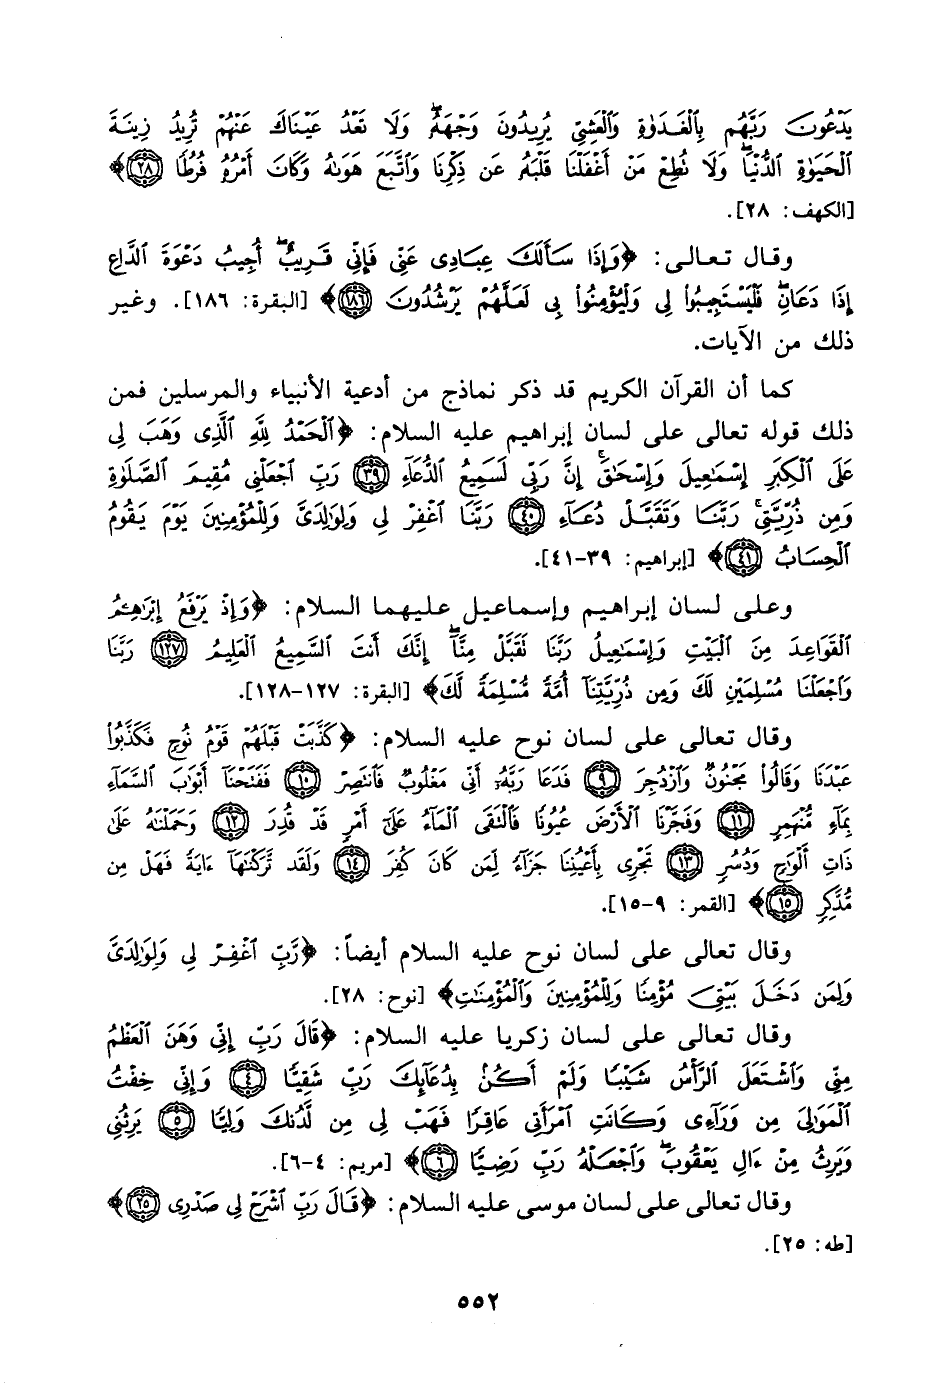 يَدْعُونَ رَبَّهُم بِالْغَدَوٰةِ وَالْعَشِيِّ يُرِيدُونَ وَجْهَهُۥ ۖ وَلَا تَعْدُ عَيْنَاكَ عَنْهُمْ تُرِيدُ زِينَةَ
الْحَيَوٰةِ الدُّنْيَا ۖ وَلَا نُطِعْ مَنْ أَغْفَلْنَا قَلْبَهُۥ عَن ذِكْرِنَا وَاتَّبَعَ هَوَىٰهُ وَكَانَ أَمْرُهُۥ فُرُطًا ٢٨﴾
[الكهف: ٢٨].
وقال تعالى: ﴿وَإِذَا سَأَلَكَ عِبَادِى عَنِّى فَإِنِّى قَرِيبٌ ۖ أُجِيبُ دَعْوَةَ الدَّاعِ
إِذَا دَعَانِ ۖ فَلْيَسْتَجِيبُوا۟ لِى وَلْيُؤْمِنُوا۟ بِى لَعَلَّهُمْ يَرْشُدُونَ ١٨٦﴾ [البقرة: ١٨٦]. وغير
ذلك من الآيات.
كما أن القرآن الكريم قد ذكر نماذج من أدعية الأنبياء والمرسلين فمن
ذلك قوله تعالى على لسان إبراهيم عليه السلام: ﴿الْحَمْدُ لِلَّهِ الَّذِى وَهَبَ لِى
عَلَى الْكِبَرِ إِسْمَٰعِيلَ وَإِسْحَٰقَ ۚ إِنَّ رَبِّى لَسَمِيعُ الدُّعَآءِ ٣٩ رَبِّ اجْعَلْنِى مُقِيمَ الصَّلَوٰةِ
وَمِن ذُرِّيَّتِى ۚ رَبَّنَا وَتَقَبَّلْ دُعَآءِ ٤٠ رَبَّنَا اغْفِرْ لِى وَلِوَٰلِدَىَّ وَلِلْمُؤْمِنِينَ يَوْمَ يَقُومُ
الْحِسَابُ ٤١﴾ [إبراهيم: ٣٩-٤١].
وعلى لسان إبراهيم وإسماعيل عليهما السلام: ﴿وَإِذْ يَرْفَعُ إِبْرَٰهِـۧمُ
الْقَوَاعِدَ مِنَ الْبَيْتِ وَإِسْمَٰعِيلُ رَبَّنَا تَقَبَّلْ مِنَّآ ۖ إِنَّكَ أَنتَ السَّمِيعُ الْعَلِيمُ ١٢٧ رَبَّنَا
وَاجْعَلْنَا مُسْلِمَيْنِ لَكَ وَمِن ذُرِّيَّتِنَآ أُمَّةً مُّسْلِمَةً لَّكَ﴾ [البقرة: ١٢٧-١٢٨].
وقال تعالى على لسان نوح عليه السلام: ﴿كَذَّبَتْ قَبْلَهُمْ قَوْمُ نُوحٍ فَكَذَّبُوا۟
عَبْدَنَا وَقَالُوا۟ مَجْنُونٌ وَازْدُجِرَ ٩ فَدَعَا رَبَّهُۥٓ أَنِّى مَغْلُوبٌ فَانتَصِرْ ١٠ فَفَتَحْنَآ أَبْوَٰبَ السَّمَآءِ
بِمَآءٍ مُّنْهَمِرٍ ١١ وَفَجَّرْنَا الْأَرْضَ عُيُونًا فَالْتَقَى الْمَآءُ عَلَىٰٓ أَمْرٍ قَدْ قُدِرَ ١٢ وَحَمَلْنَٰهُ عَلَىٰ
ذَاتِ أَلْوَٰحٍ وَدُسُرٍ ١٣ تَجْرِى بِأَعْيُنِنَا جَزَآءً لِّمَن كَانَ كُفِرَ ١٤ وَلَقَد تَّرَكْنَٰهَآ ءَايَةً فَهَلْ مِن
مُّدَّكِرٍ ١٥﴾ [القمر: ٩-١٥].
وقال تعالى على لسان نوح عليه السلام أيضاً: ﴿رَّبِّ اغْفِرْ لِى وَلِوَٰلِدَىَّ
وَلِمَن دَخَلَ بَيْتِىَ مُؤْمِنًا وَلِلْمُؤْمِنِينَ وَالْمُؤْمِنَٰتِ﴾ [نوح: ٢٨].
وقال تعالى على لسان زكريا عليه السلام: ﴿قَالَ رَبِّ إِنِّى وَهَنَ الْعَظْمُ
مِنِّى وَاشْتَعَلَ الرَّأْسُ شَيْبًا وَلَمْ أَكُنۢ بِدُعَآئِكَ رَبِّ شَقِيًّا ٤ وَإِنِّى خِفْتُ
الْمَوَٰلِىَ مِن وَرَآءِى وَكَانَتِ امْرَأَتِى عَاقِرًا فَهَبْ لِى مِن لَّدُنكَ وَلِيًّا ٥ يَرِثُنِى
وَيَرِثُ مِنْ ءَالِ يَعْقُوبَ ۖ وَاجْعَلْهُ رَبِّ رَضِيًّا ٦﴾ [مريم: ٤-٦].
وقال تعالى على لسان موسى عليه السلام: ﴿قَالَ رَبِّ اشْرَحْ لِى صَدْرِى ٢٥﴾
[طه: ٢٥].
٥٥٢